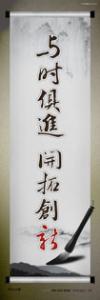 与时俱進 開拓創新